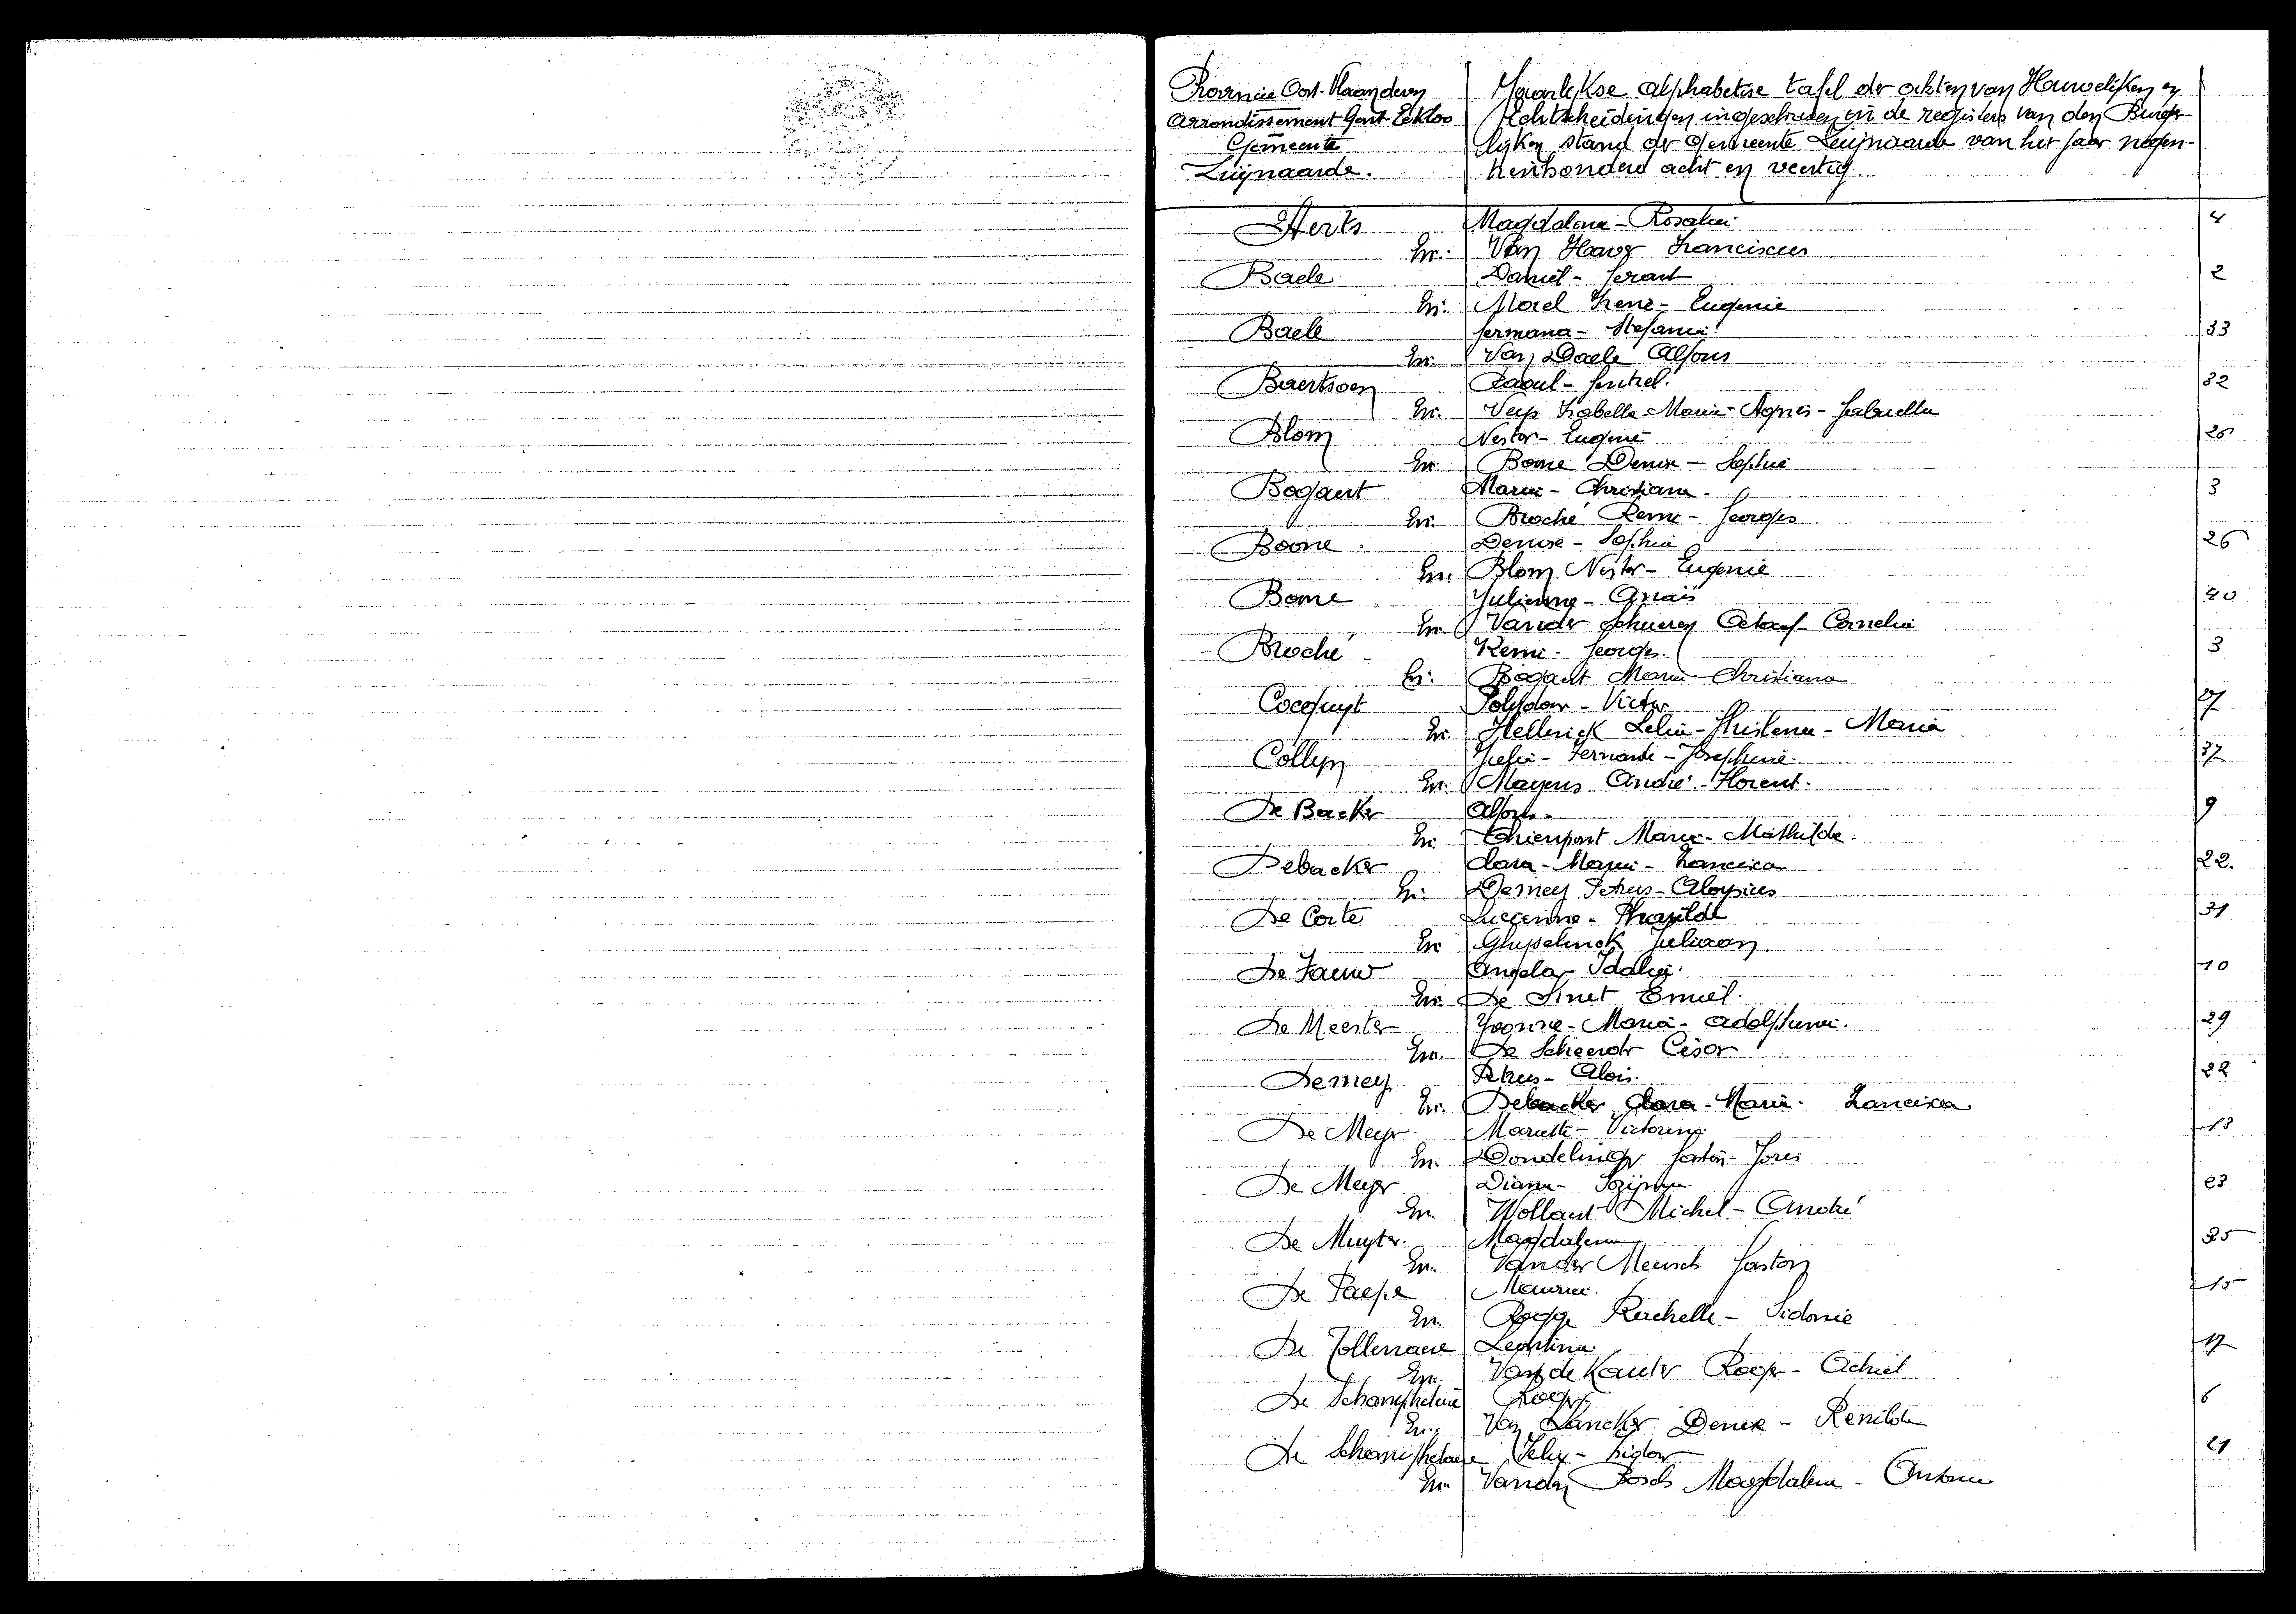 Provincie Oost-Vlaanderen
Arrondissement Gent-Eekloo
Gemeente
Zwijnaarde.
Jaarlijkse alphabetise tafel der akten van Huwelijken en
Echtscheidingen ingeschreven in de registers van den Burger-
lijken stand der Gemeente Zwijnaarde van het jaar negen-
tienhonderd acht en veertig.
Aerts Magdalena-Rosalia 4
En. Van Franciscus
Baele Daniel-Gerard 2
En. Morel Irene-Eugenie
Baele Germana-Stefanie. 33
En. Van Daele Alfons
Baertsoen Raoul- 32
En. Isabella-Maria-Agnes-Gabriella
Blom Nestor-Eugene 26
En. Boone Denise-Sophie
Bogaert Maria-Christiana 3
En. Broché Remi-Georges
Boone Denise-Sophie 26
En. Blom Nestor-Eugenie
Boone Julienne-Anais 40
En. Vander Schueren Octaaf-Cornelis
Broché Remi-Georges. 3
En. Bogaert Maria-Christiana
Cocquyt Polydoor-Victor 27
En. Hellinck Lelia-Ghislena-Maria
Collyn Julia-Fernande-Josephine. 37
En. Mayens André-Florent.
De Backer Alfons. 9
En. Thienpont Maria-Mathilde.
Debacker Clara-Maria-Francisca 22.
En. Demey Petrus-Aloysius
De Corte Lucienne-Tharsilde 31
En. Ghyselinck Juliaan
De Fauw Angela-Idalia. 10
En. De Smet Emiel.
De Meester Yvonne-Maria-Adolphina. 29
En. De Scheerder Cesar
Demey Petrus-Alois. 22
En. Debacker Clara-Maria-Francisca
De Meyer Mariette-Victorina 13
En. Dondelinger Gaston-Joris
De Meyer Diana- 23
En. Wollaert Michel-André
De Muyter. Magdalena 25
En. Vander Meersch Gaston
De Paepe Maurice. 15
En. Rogge Rachelle-Sidonie
De Tollenaere Leontina. 17
En. Van de Kauter Roger-Achiel
De Schamphelaere Roger 6
En. Van Lancker Denise-Renilda
De Schamphelaere Felix-Isidoor 21
En. Vanden Bosch Magdalena-